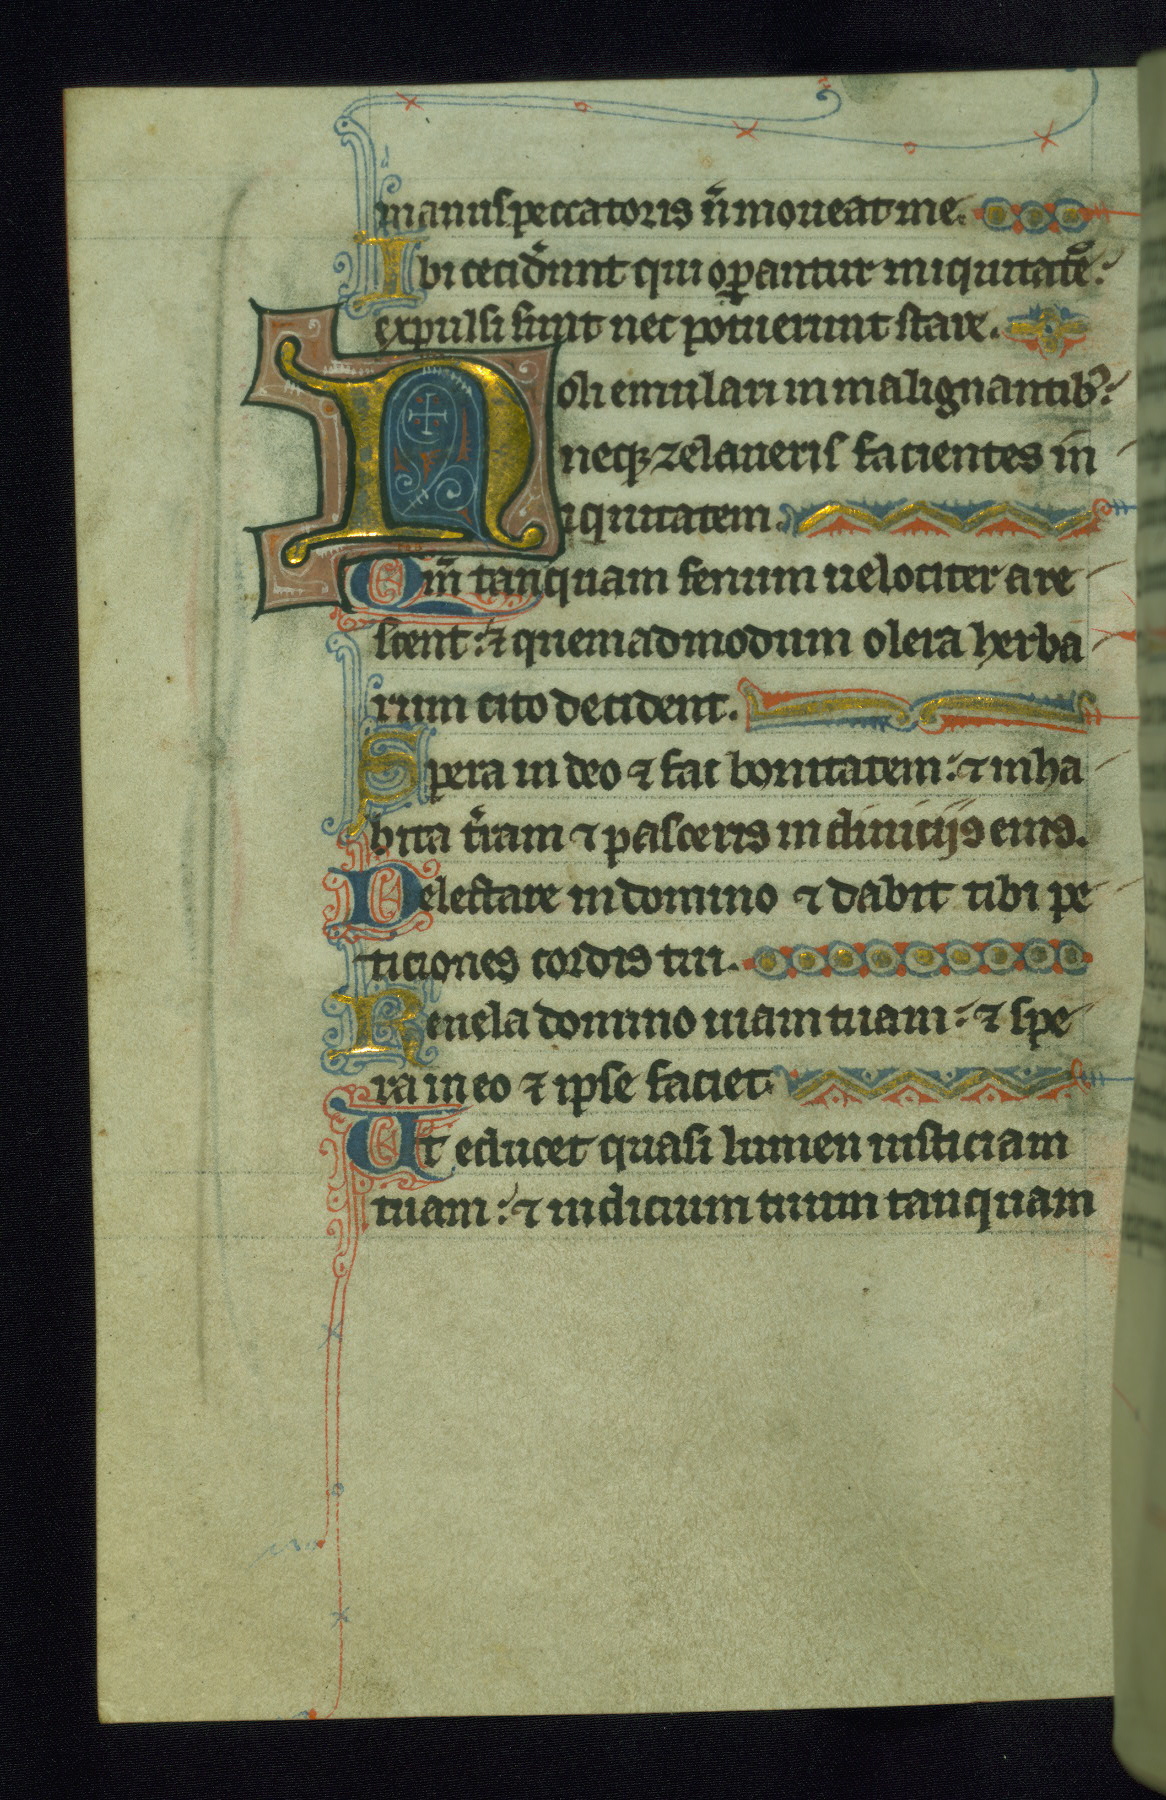 manus peccatoris n̄ moueat me.
Ibi cecider̄unt qui oꝑantur iniquitatē:
expulsi sunt nec potuerunt stare.
Noli emulari in malignantibꝰ:
neqꝫ zelaueris facientes in
iquitatem.
Qm̄ tanquam fenum uelociter are
scent: ⁊ quemadmodum olera herba
rum cito decident.
Spera in deo ⁊ fac bonitatem: ⁊ inha
bita t̄ram ⁊ pasceris in diuiciis eius.
Delectare in domino ⁊ dabit tibi pe
ticiones cordis tui.
Reuela domino uiam tuam: ⁊ spe
ra in eo ⁊ ipse faciet.
Et educet quasi lumen iusticiam
tuam: ⁊ iudicium tuum tanquam